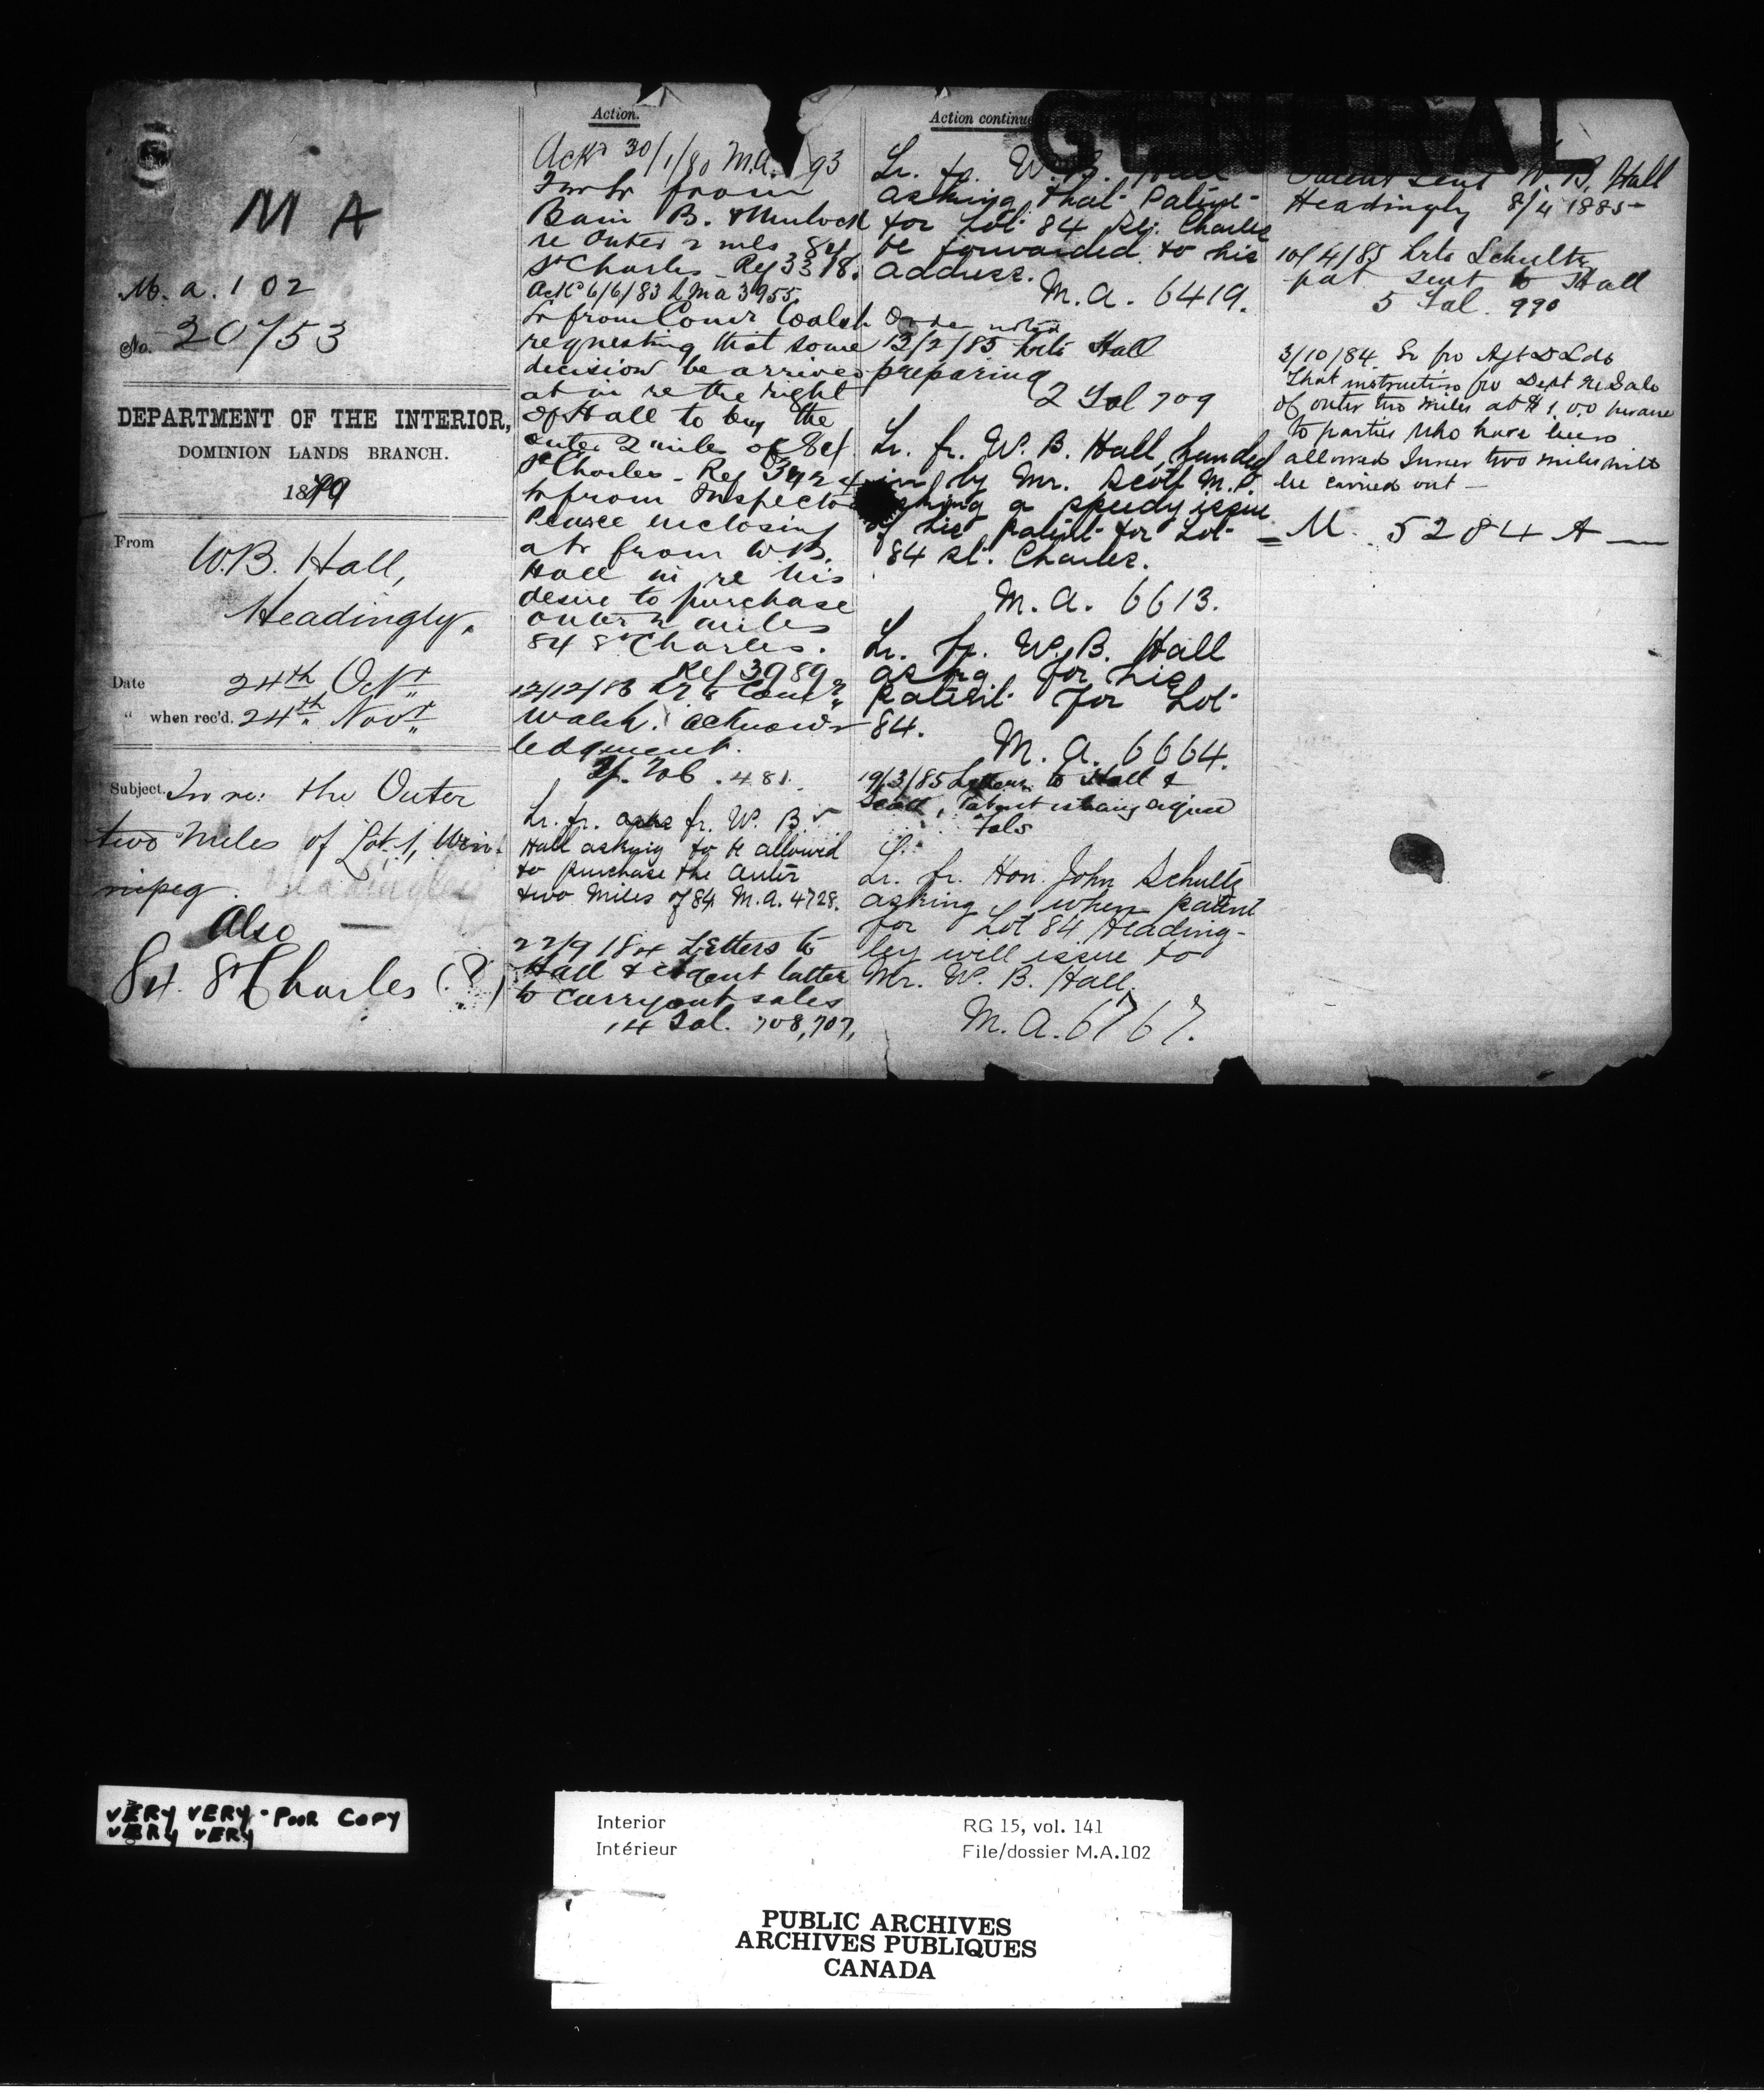 M A
M.a. 102
No. 20753
DEPARTMENT OF THE INTERIOR,
DOMINION LANDS BRANCH.
1879
From W.B. Hall,
Headingly.
Date 24th Oct
" when rec'd. 24th Novr
Subject. In re: the Outer
two Miles of Lot 1, Win-
nipeg.
Also
84 St Charles (?)
Action.
Ackd 30/1/80 M.A. 93
from
Bain B. & Mulock
re Outer 2 mls 84
St Charles - Ref 3318.
Ackd 6/6/83 L M a 3955.
Lr from Comr Walsh
requesting that some
decision be arrived
at in re the right
of Hall to buy the
outer 2 mile of 84
St Charles - Ref 3924
Lr from Inspector
Pearce enclosing
a lr from W.B.
Hall in re his
desire to purchase
outer 2 miles
84 St Charles.
Ref 3989
12/12/83 Lr to Comr
Walsh. acknow-
ledgment.
481.
Lr. fr. fr. W. B.
Hall asking to be allowed
to purchase the outer
two miles of 84 M.A. 4728.
22/9/84 Letters to
Hall & Agent latter
to carry out sales
14 Fol. 708, 707,
Action continue
GENERAL
Lr. fr. W. B. Hall
asking that Patent
for Lot 84 St. Charles
be forwarded to his
address.
M.A. 6419.
noted
13/2/85 Lr to Hall
preparing
2 Fol 709
Lr. fr. W. B. Hall, handed
in by Mr. Scott M.P.
asking a speedy issue
of his patent for Lot
84 St. Charles.
M.A. 6613.
Lr. fr. W. B. Hall
asking for his
patent for Lot
84.
M.A. 6664.
19/3/85 Letters to Hall &
Scott, Patent
Fols
Lr. fr. Hon. John Schultz
asking when patent
for Lot 84 Heading-
ley will issue to
Mr. W. B. Hall.
M.A. 6767.
Patent sent W. B. Hall
Headingly 8/4 1885
10/4/85 Lr to Schultz
pat sent to Hall
5 Fol. 990
3/10/84 Lr fro Agt D Lds
That instruction fro Dept re Sale
of outer two miles at $1.00 per acre
to parties who have been
allowed Inner two miles will
be carried out -
M. 5284 A
VERY VERY - POOR COPY
VERY VERY
Interior RG 15, vol. 141
Intérieur File/dossier M.A.102
PUBLIC ARCHIVES
ARCHIVES PUBLIQUES
CANADA